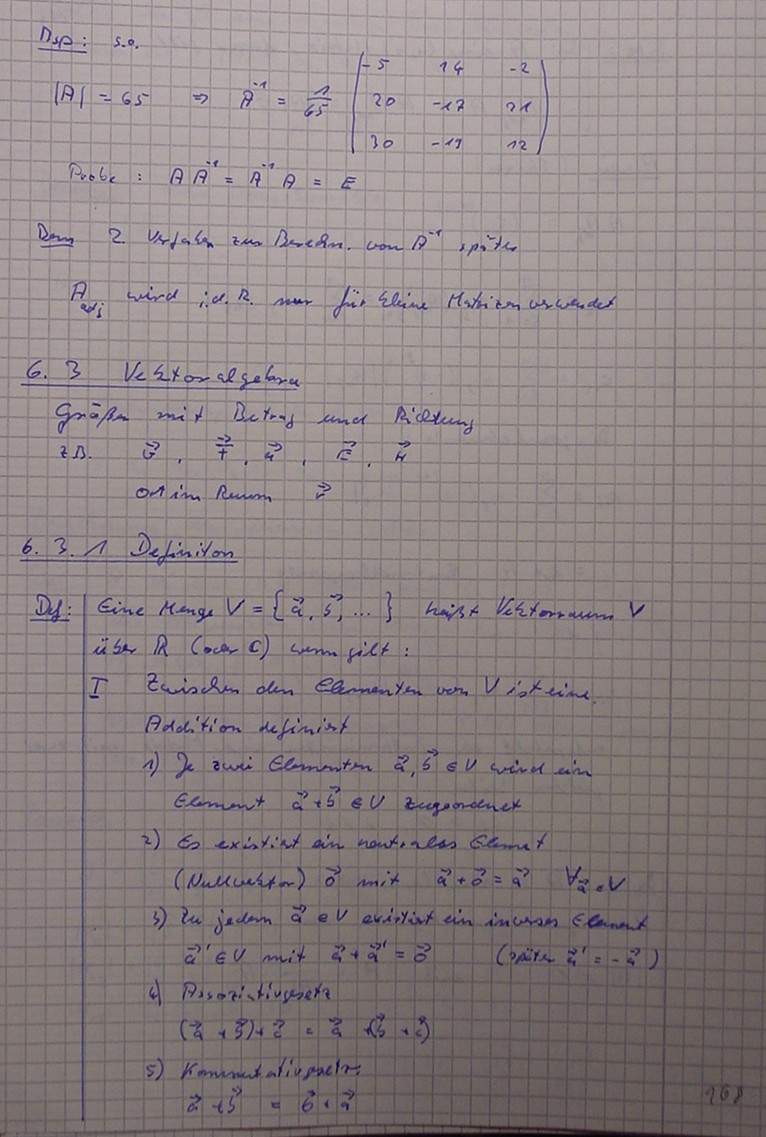 Bsp: s.o.
|A| = 65 ⇒ A⁻¹ = 1/65 | -5 14 -2 |
| 20 -17 21 |
| 30 -19 12 |
Probe: A A⁻¹ = A⁻¹ A = E
Bem 2. Verfahren zur Berechn. von A⁻¹ später
A_adj wird i.d.R. nur für kleine Matrizen verwendet
6.3 Vektoralgebra
Größen mit Betrag und Richtung
z.B. v⃗, F⃗, a⃗, E⃗, H⃗
Ort im Raum r⃗
6.3.1 Definiton
Def: Eine Menge V = {a⃗, b⃗, ...} heißt Vektorraum V
über ℝ (oder C) wenn gilt:
I Zwischen den Elementen von V ist eine
Addition definiert
1) Je zwei Elementen a⃗, b⃗ ∈ V wird ein
Element a⃗ + b⃗ ∈ V zugeordnet
2) Es existiert ein neutrales Element
(Nullvektor) 0⃗ mit a⃗ + 0⃗ = a⃗ ∀ a⃗ ∈ V
3) Zu jedem a⃗ ∈ V existiert ein inverses Element
a⃗' ∈ V mit a⃗ + a⃗' = 0⃗ (später a⃗' = -a⃗)
4) Assoziativgesetz
(a⃗ + b⃗) + c⃗ = a⃗ + (b⃗ + c⃗)
5) Kommutativgesetz
a⃗ + b⃗ = b⃗ + a⃗
168